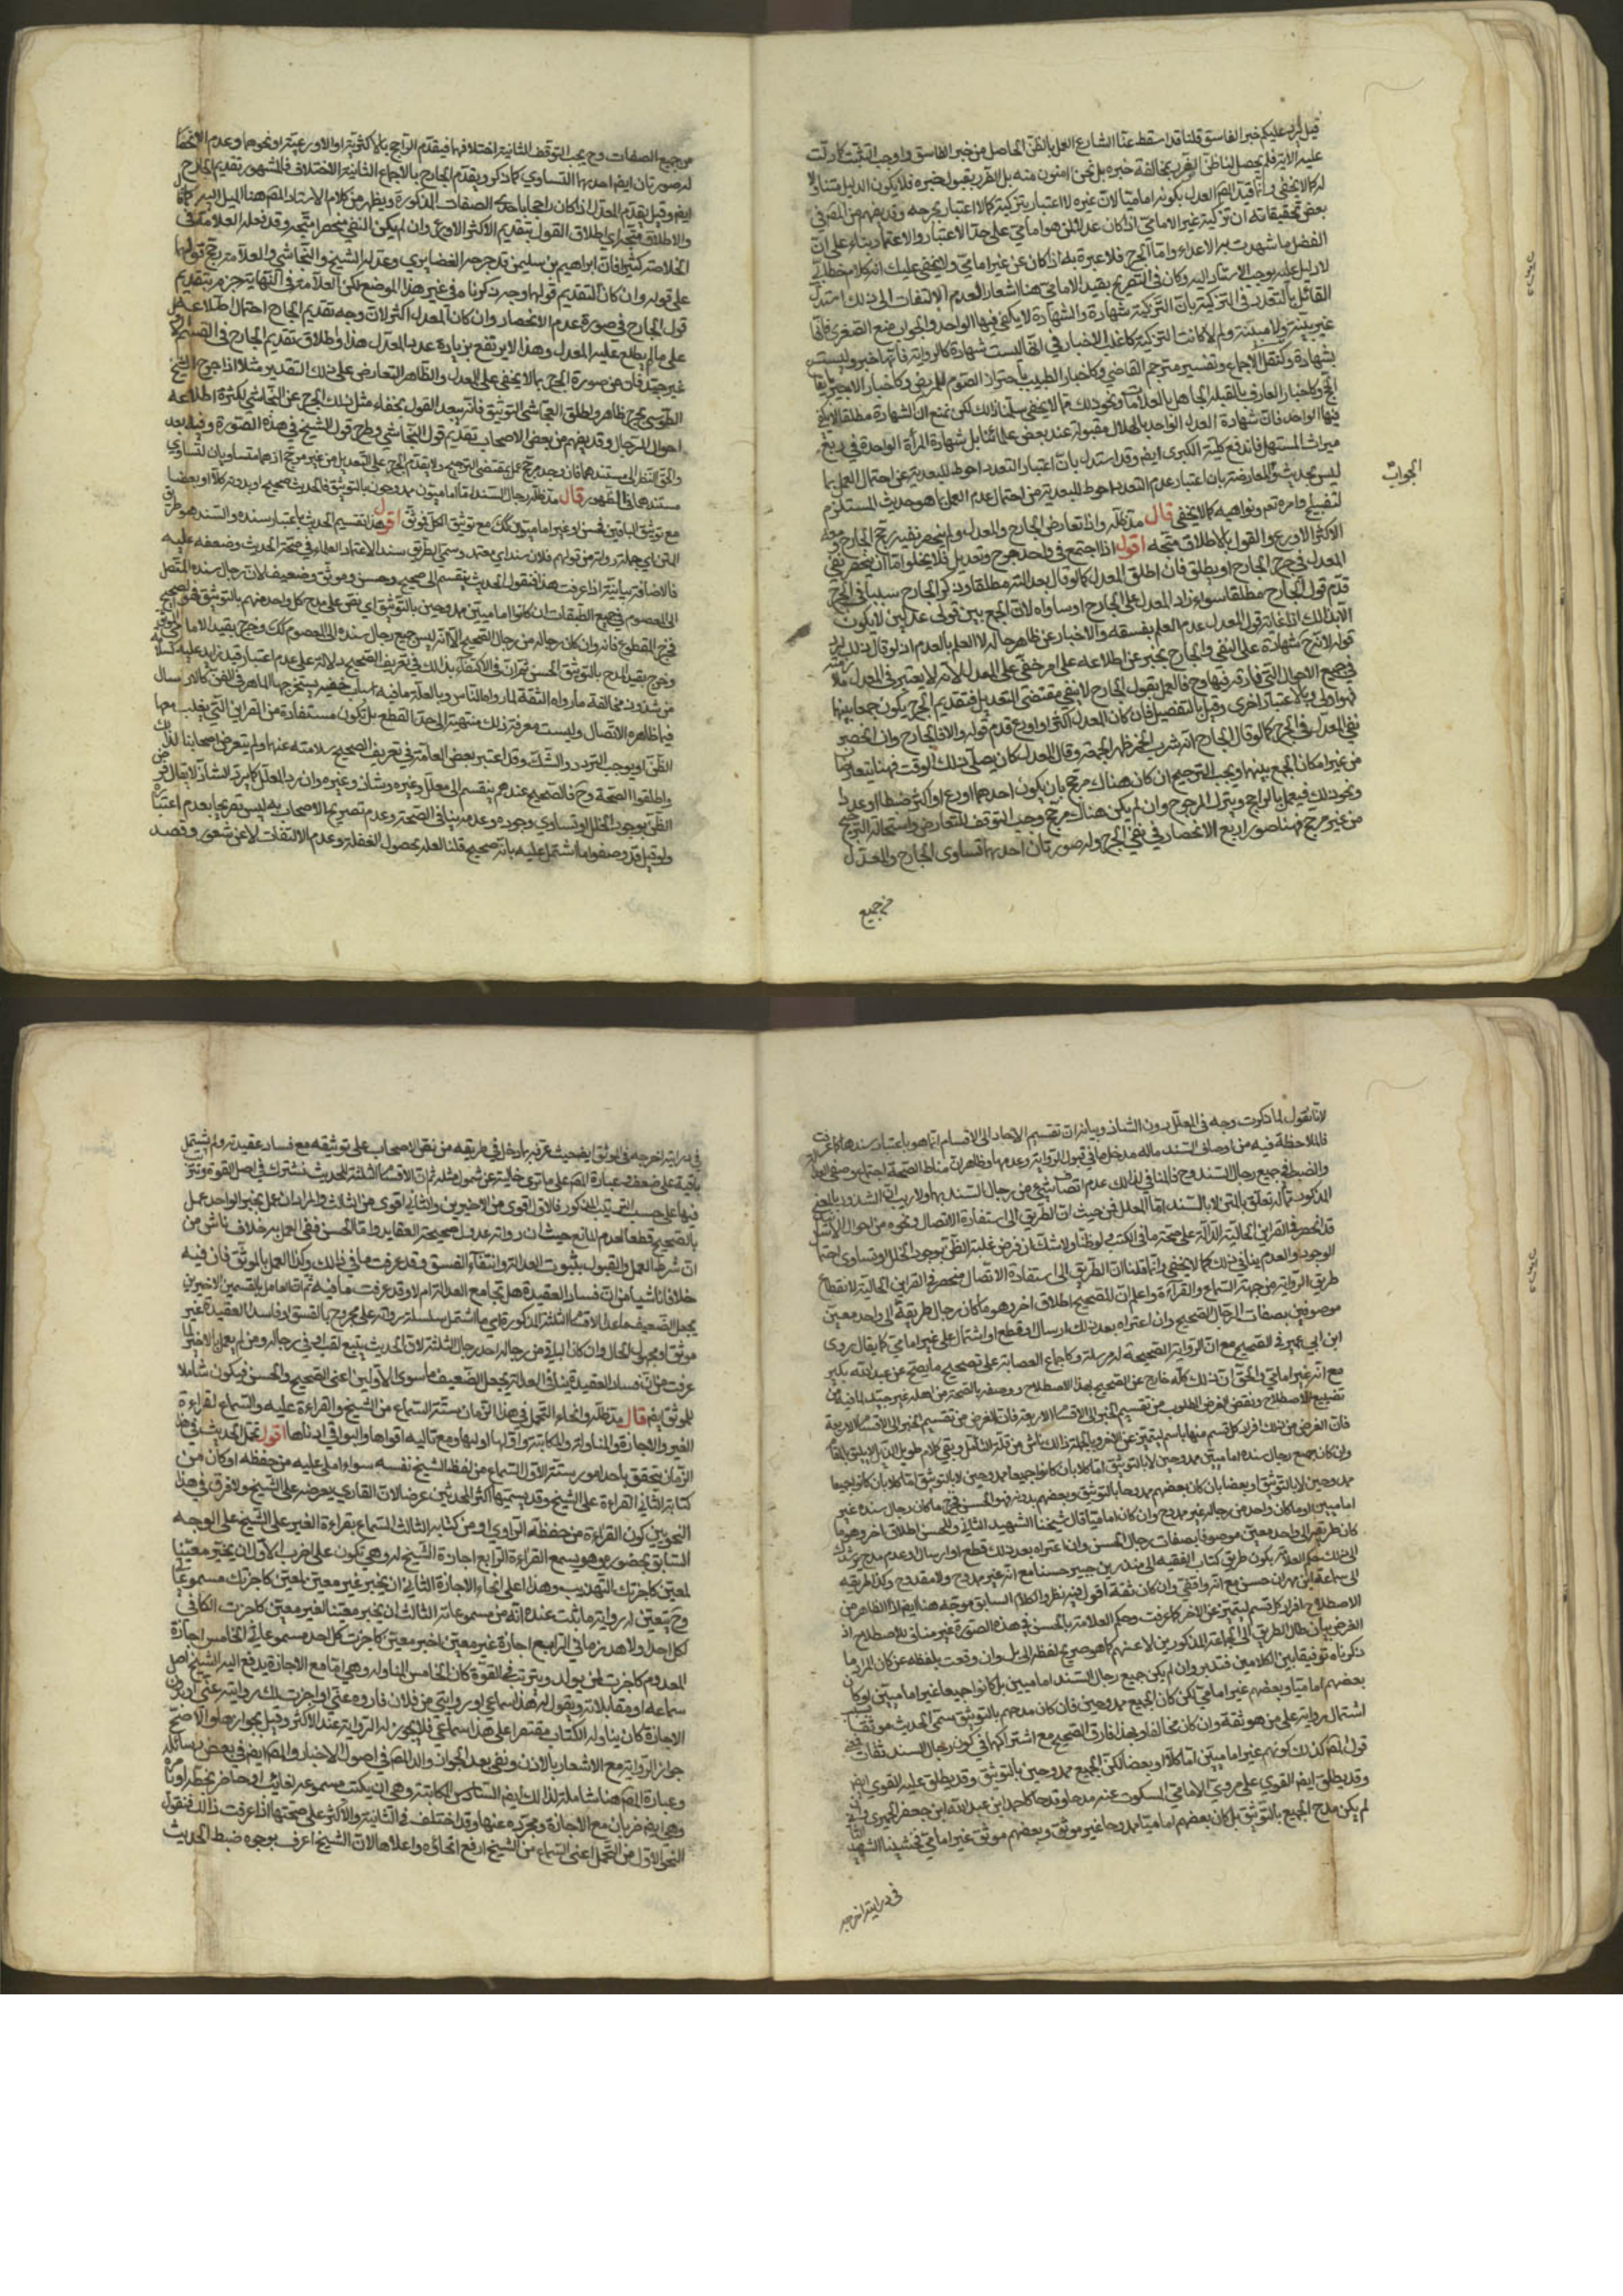 قيل لم يرد عليكم خبر الفاسق قلنا قد اسقط عنا الشارع العمل بالظن الحاصل من خبر الفاسق واوجب التثبت كما دلت
عليه الاية فلم يحصل لنا ظن الضرر بمخالفة خبره بل نحن امنون منه بل الضرر بقبول خبره فلا يكون الدليل متناولا
له كما لا يخفى وانما قيد المص العدل بكونه اماميا لان غيره لا اعتبار بتزكيته كما لا اعتبار بجرحه وقد يفهم من المص في
بعض تحقيقاته ان تزكية غير الامامي اذا كان عدلا لمن هو امامي على حد الاعتبار والاعتماد بناء على ان
الفضل ما شهدت به الاعداء واما الجرح فلا عبرة به اذا كان عن غير امامي ولا يخفى عليك انه كلام خطابي
لا دليل عليه يوجب الاستناد اليه وكان في التصريح بقيد الامامي هنا اشعار العدم الالتفات الى ذلك استدل
القائل بالتعدد في التزكية بان التزكية شهادة والشهادة لا يكفي فيها الواحد والجواب منع الصغرى فانها
غير بينة ولا مبينة ولم لا كانت التزكية كاغلب الاخبار في انها ليست شهادة كالرواية فانها خبر وليست
بشهادة وكنقل الاجماع وتفسير مترجم القاضي وكاخبار الطبيب باحتراز الصوم للمريض وكاخبار الاجير بايقاع
الحج وكاخبار العارف بالقبلة الجاهل بالعلامات ونحو ذلك مما لا يخفى سلمنا ذلك لكن نمنع ان الشهادة مطلقا لا يكفي
فيها الواحد فان شهادة العدل الواحد بالهلال مقبولة عند بعض علمائنا بل شهادة المرأة الواحدة في ربع
ميراث المستهل فاندفع كلية الكبرى ايضا وقد استدل بان اعتبار التعدد احوط للبعدية عن احتمال العمل بما
ليس بحديث والمعارضة بان اعتبار عدم التعدد احوط للبعدية من احتمال عدم العمل بما هو حديث المستلزم
الجواب
لتضييع اوامره تعم ونواهيه كما لا يخفى قال مد ظله واذا تعارض الجارح والمعدل ولم ينحصر نفيه رجح الجارح ومعه
الاكثر الاورع والقول بالاطلاق متجه اقول اذا اجتمع في واحد جرح وتعديل فلا يخلو اما ان ينحصر نفي
المعدل في جرح الجارح او يطلق فان اطلق المعدل كما لو قال بعدالته مطلقا وذكر الجارح سببا في الجرح
قدم قول الجارح مطلقا سواء زاد المعدل على الجارح او ساواه لان الجمع بين قولي عدلين لا يكون
الا بذلك اذ غاية قول المعدل عدم العلم بفسقه والاخبار عن ظاهر حاله لا العلم بالعدم اذ لو قال ذلك لم
قوله لانه شهادة على النفي والجارح يخبر عن اطلاعه على امر خفي على المعدل لانه لا يعتبر في المعدل ملازمته
في جميع الاحوال التي فارقه فيها وح فالعمل بقول الجارح لا ينفي مقتضى التعديل فتقديم الجرح يكون جمعا بينهما
فهو اولى وبالاعتبار احرى وقيل بالتفصيل فان كان المعدل اكثر او اورع قدم قوله والا فالجارح وان انحصر
نفي المعدل في الجرح كما لو قال الجارح انه شرب الخمر ظهر الجمعة وقال المعدل كان يصلي ذلك الوقت فهنا يتعارضان
من غير امكان الجمع بينهما ويجب الترجيح ان كان هناك مرجح بان يكون احدهما اورع او اكثر ضبطا او عددا
ونحو ذلك فيعمل بالراجح ويترك المرجوح وان لم يكن هناك مرجح وجب التوقف للتعارض واستحالة الترجيح
من غير مرجح فهنا صور اربع الانحصار في نفي الجرح وله صورتان احديهما تساوى الجارح والمعدل
من جميع
من جميع الصفات وح يجب التوقف الثانية اختلافهما فيقدم الراجح بالاكثرية او الاورعية او نحوهما وعدم الانحصار
له صورتان ايضا احديهما التساوي كما ذكر ويقدم الجارح بالاجماع الثانية الاختلاف فالمشهور تقديم الجارح
ايضا وقيل يقدم المعدل اذا كان راجحا باحدى الصفات المذكورة ويظهر من كلام الاستاد المص هنا الميل اليه
والاطلاق متجه اي اطلاق القول بتقديم الاكثر الاورع وان لم يكن النفي منحصرا متجه وقد فعله العلامة في
الخلاصة كثيرا فان ابراهيم بن سليمن قد جرحه الغضايري وعدله الشيخ والنجاشي والعلامة رجح قولهما
على قوله وان كان التقديم قولهما وجه ذكرناه في غير هذا الموضع لكن العلامة في النهاية جزم بتقديم
قول الجارح في صورة عدم الانحصار وان كان المعدل اكثر لان وجه تقديم الجارح احتمال اطلاعه
على ما لم يطلع عليه المعدل وهذا لا يرتفع بزيادة عدد المعدل هذا واطلاق تقديم الجارح في القسم
غير جيد فان من صورة الجرح بما لا يخفى على المعدل والظاهر التعارض على ذلك التقدير مثلا اذا جرح الشيخ
الطوسي بجرح ظاهر واطلق النجاشي التوثيق فانه يبعد القول بخفاء مثل ذلك الجرح عن النجاشي لكثرة اطلاعه
احوال الرجال وقد يفهم من بعض الاصحاب تقديم قول النجاشي وطرح قول الشيخ في هذه الصورة وفيه بعد
والحق النظر الى مستندهما فان وجد مرجح عمل بمقتضى الترجيح ولا يقدم الجرح على التعديل من غير مرجح اذ هما متساويان لتساوي
مستندهما في الظهور قال مد ظله رجال السند اما اماميون ممدوحون بالتوثيق فالحديث صحيح او بدونه كلا او بعضا
مع توثيق الباقين فحسن او غير اماميين كلا او بعضا مع توثيق الكل فموثق اقول هذا تقسيم الحديث باعتبار سنده والسند هو طريق
المتن اي جملة رواته من قولهم فلان سند اي معتمد وسمى الطريق سندا لاعتماد العلماء في صحة الحديث وضعفه عليه
فالاضافة بيانية اذا عرفت هذا فنقول الحديث ينقسم الى صحيح وحسن وموثق وضعيف لان رجال سنده المتصل
الى المعصوم في جميع الطبقات ان كانوا اماميين ممدوحين بالتوثيق اي نص على مدح كل واحد منهم بالتوثيق فهو الصحيح
فخرج المقطوع فانه وان كان رجاله من رجال الصحيح الا انه ليس جميع رجال سنده الى المعصوم كك وخرج بقيد الامامي الموثق
وخرج بقيد المدح بالتوثيق الحسن ثم ان في الاكتفاء بذلك في تعريف الصحيح دلالة على عدم اعتبار قيد زايد عليه كسلامته
من شذوذ مخالفة ما رواه الثقة لما رواه الناس وبالعلة ما فيه اسباب خفية يستخرجها الماهر في الفن كالارسال
فيما ظاهره الاتصال وليست معرفة ذلك منتهية الى حد القطع بل تكون مستفادة من القراين التي يغلب معها
الظن او يوجب التردد والشك وقد اعتبر بعض العامة في تعريف الصحيح سلامته عنها ولم يتعرض اصحابنا لذلك
واطلقوا الصحة وح فالصحيح عندهم ينقسم الى معلل وغيره وشاذ وغيره وان رد المعلل كما يرد الشاذ لا يقال فرض
الظن بوجود الخلل او تساوي وجوده وعدمه ينافي الصحة وعدم تصريح الاصحاب به ليس تصريحا بعدم اعتباره
ولو قيل قد وصفوا ما اشتمل عليه بانه صحيح قلنا لعله بحصول الغفلة وعدم الالتفات لا عن شعور وقصد
لانا نقول لما ذكرت وجه في المعلل دون الشاذ وبيانه ان تقسيم الاحاد الى الاقسام انما هو باعتبار سندها كما عرفت
فالملاحظة فيه من اوصاف السند ماله مدخل ما في قبول الرواية وعدمها وظاهر ان مناط الصحة اجتماع وصفي العدالة
والضبط في جميع رجال السند وح فالمنافي لذلك عدم اتصاف شيء من رجال السند بهما ولا ريب ان الشذوذ بالمعنى
المذكور مما له تعلق بالمتن لا بالسند اما المعلل فمن حيث ان الطريق الى استفادة الاتصال ونحوه من احوال الاسناد
قد انحصر في القراين الحالية الدالة على صحة ما في الكتب ولو ظنا ولا شك ان فرض غلبة الظن بوجود الخلل او تساوى احتمالي
الوجود والعدم ينافي ذلك كما لا يخفى وانما قلنا ان الطريق الى استفادة الاتصال منحصر في القراين الحالية لانقطاع
طريق الرواية من جهة السماع والقراءة واعلم ان للصحيح اطلاق اخر وهو ما كان رجال طريقه الى واحد معين
موصوفين بصفات الرجال الصحيح وان اعتراه بعد ذلك ارسال او قطع او اشتمال على غير امامي كما يقال روى
ابن ابي عمير في الصحيح مع ان الرواية الصحيحة له مرسلة وكاجماع العصابة على تصحيح ما يصح عن عبد الله بن بكير
مع انه غير امامي والحق ان ذلك كله خارج عن الصحيح بهذا الاصطلاح ووصفه بالصحة من اهله غير جيد لما فيه من
تضييع الاصطلاح ونقض الغرض المطلوب من تقسيم الخبر الى الاقسام الاربعة فان الغرض من تقسيم الخبر الى الاقسام الاربعة
فان الغرض من ذلك افراد كل قسم منها باسم ليتميز عن الاخر وبالجملة ذلك ناش من قلة التامل وبقي كلام طويل الذيل لا يليق بالمقام
وان كان جميع رجال سنده اماميين ممدوحين لا بالتوثيق اما كلا بان كانوا جميعا ممدوحين لا بالتوثيق اما كلا بان كانوا جميعا
ممدوحين لا بالتوثيق او بعضا بان كان بعضهم ممدوحا بالتوثيق وبعضهم بدونه فهو الحسن فخرج ما كان رجال سنده غير
اماميين او ما كان واحد من رجاله غير ممدوح وان كان اماميا قال شيخنا الشهيد الثاني وللحسن اطلاق اخر وهو ما
كان طريقه الى واحد معين موصوفا بصفات رجال الحسن وان اعتراه بعد ذلك قطع او ارسال او عدم مدح
الى ذلك حكم العلامة بكون طريق كتاب الفقيه الى منذر بن جبير حسنا مع انه غير ممدوح ولا مقدوح وكذا طريقه
الى سماعة بن مهران حسن مع انه واقفي وان كان ثقة اقول فيه نظر والكلام السابق متوجه هنا ايضا اذ الظاهر من
الاصطلاح افراد كل قسم ليتميز عن الاخر كما عرفت وحكم العلامة بالحسن في هذه الصورة غير مناف للاصطلاح اذ
الغرض بيان حال الطريق الى الجماعة المذكورين لا عنهم كما هو صريح لفظ الى بل وان وقعت بلفظه عن كان المراد ما
ذكرناه توفيقا بين الكلامين فتدبر وان لم يكن جميع رجال السند اماميين بل كانوا جميعا غير اماميين او كان
بعضهم اماميا وبعضهم غير امامي لكن كان الجميع ممدوحين فان كان مدحهم بالتوثيق سمى الحديث موثقا
اشتمال رواته على من هو ثقة وان كان مخالفا وبهذا فارق الصحيح مع اشتراكهما في كون رجال السند ثقات
قول المص كذلك كونهم غير اماميين اما كلا او بعضا لكن الجميع ممدوحين بالتوثيق وقد يطلق عليه القوي ايضا
وقد يطلق ايضا القوي على مروي الامامي المسكوت عنه مدحا وقدحا كاحمد ابن عبد الله ابن جعفر الحميري وان
لم يكن مدح الجميع بالتوثيق بل كان بعضهم اماميا ممدوحا غير موثق وبعضهم موثق غير امامي فشيخنا الشهيد الثاني
في درايته اخرجه
في درايته اخرجه في الموثق ايضا حيث عرفه بما دخل في طريقه من نص الاصحاب على توثيقه مع فساد عقيدته ولم يشتمل
باقيه على ضعف وعبارة المص على ما ترى خالية عن شمول مثله ثم ان الاقسام الثلثة للحديث تشترك في اصل القوة متفاوتة
فيها على حسب الترتيب المذكور فالاول اقوى من الاخيرين والثاني اقوى من الثالث والمراد ان عمل بخبر الواحد عمل
بالصحيح قطعا لعدم المانع حيث ان رواته عدول صحيحة العقايد واما الحسن ففي العمل به خلاف ناش من
ان شرط العمل والقبول بثبوت العدالة وانتفاء الفسق وقد عرفت ما في ذلك وكذا العمل بالموثق فان فيه
خلافا ناشيا من ان فساد العقيدة هل تجامع العدالة ام لا وقد عرفت ما فيه ثم ان العامل بالقسمين الاخيرين
يجعل الضعيف ما عدا الاقسام الثلثة المذكورة اي ما اشتمل سلسلة رواته على مجروح بالفسق او فاسد العقيدة غير
موثق او مجهول الحال وان كان الباقي من رجاله احد رجال الثلثة لان الحديث يتبع لقب ادنى رجاله ومن لم يعمل بالاخير لما
عرفت من ان فساد العقيدة ينافي العدالة يجعل الضعيف ما سوى الاولين اعنى الصحيح والحسن فيكون شاملا
للموثق ايضا قال مد ظله وانحاء التحمل في هذا الزمان ستة السماع من الشيخ والقراءة عليه والسماع لقراءة
الغير والاجازة والمناولة والمكاتبة واولها اوليها ومع تاليه اقواها والبواقي ادناها اقول تحمل الحديث في هذا
الزمان يتحقق باحد امور ستة الاول السماع من لفظ الشيخ نفسه سواء املى عليه من حفظه او كان من
كتابه الثاني القراءة على الشيخ وقد يسميها اكثر المحدثين عرضا لان القاري يعرضه على الشيخ ولا فرق في هذا
النحو بين كون القراءة من حفظه الراوي او من كتابه الثالث السماع بقراءة الغير على الشيخ على الوجه
السابق بحضوره وهو يسمع القراءة الرابع اجازة الشيخ له وهي تكون على اضرب الاول ان يخبر معينا
لمعين كاجزتك التهذيب وهذا اعلى انحاء الاجازة الثاني ان يخبر غير معين لمعين كاجزتك مسموعاتي
وح يتعين له رواية ما ثبت عنده انه من مسموعاته الثالث ان يخبر معينا لغير معين كاجزت الكافي
لكل احد او لاهل زماني الرابع اجازة غير معين لغير معين كاجزت كل احد مسموعاتي الخامس اجازة
المعدوم كاجزت لمن يولد ويترتب في القوة كان الخامس المناولة وهي اما مع الاجازة يدفع اليه الشيخ اصل
سماعه او مقابلا به ويقول له هذا سماعي او روايتي من فلان فاروه عني او اجزت لك روايته عني او بدون
الاجازة كان يناوله الكتاب مقتصرا على هذا سماعي فلا يجوز له الرواية عند الاكثر وقيل بجوازها والاصح
جواز الرواية مع الاشعار بالاذن ونفى بعد الجواز والد المص في اصول الاخبار والمص ايضا في بعض رسائله
وعبارة المص هنا شاملة لذلك ايضا السادس الكتابة وهي ان يكتب مسموعه لغايب او حاضر بخطه او يأمره
وهي ايضا ضربان مع الاجازة ومجردة عنها وقد اختلف في الثانية والاكثر على صحتها اذا عرفت ذلك فنقول
النحو الاول من التحمل اعنى السماع من الشيخ ارفع انحاءه واعلاها لان الشيخ اعرف بوجوه ضبط الحديث